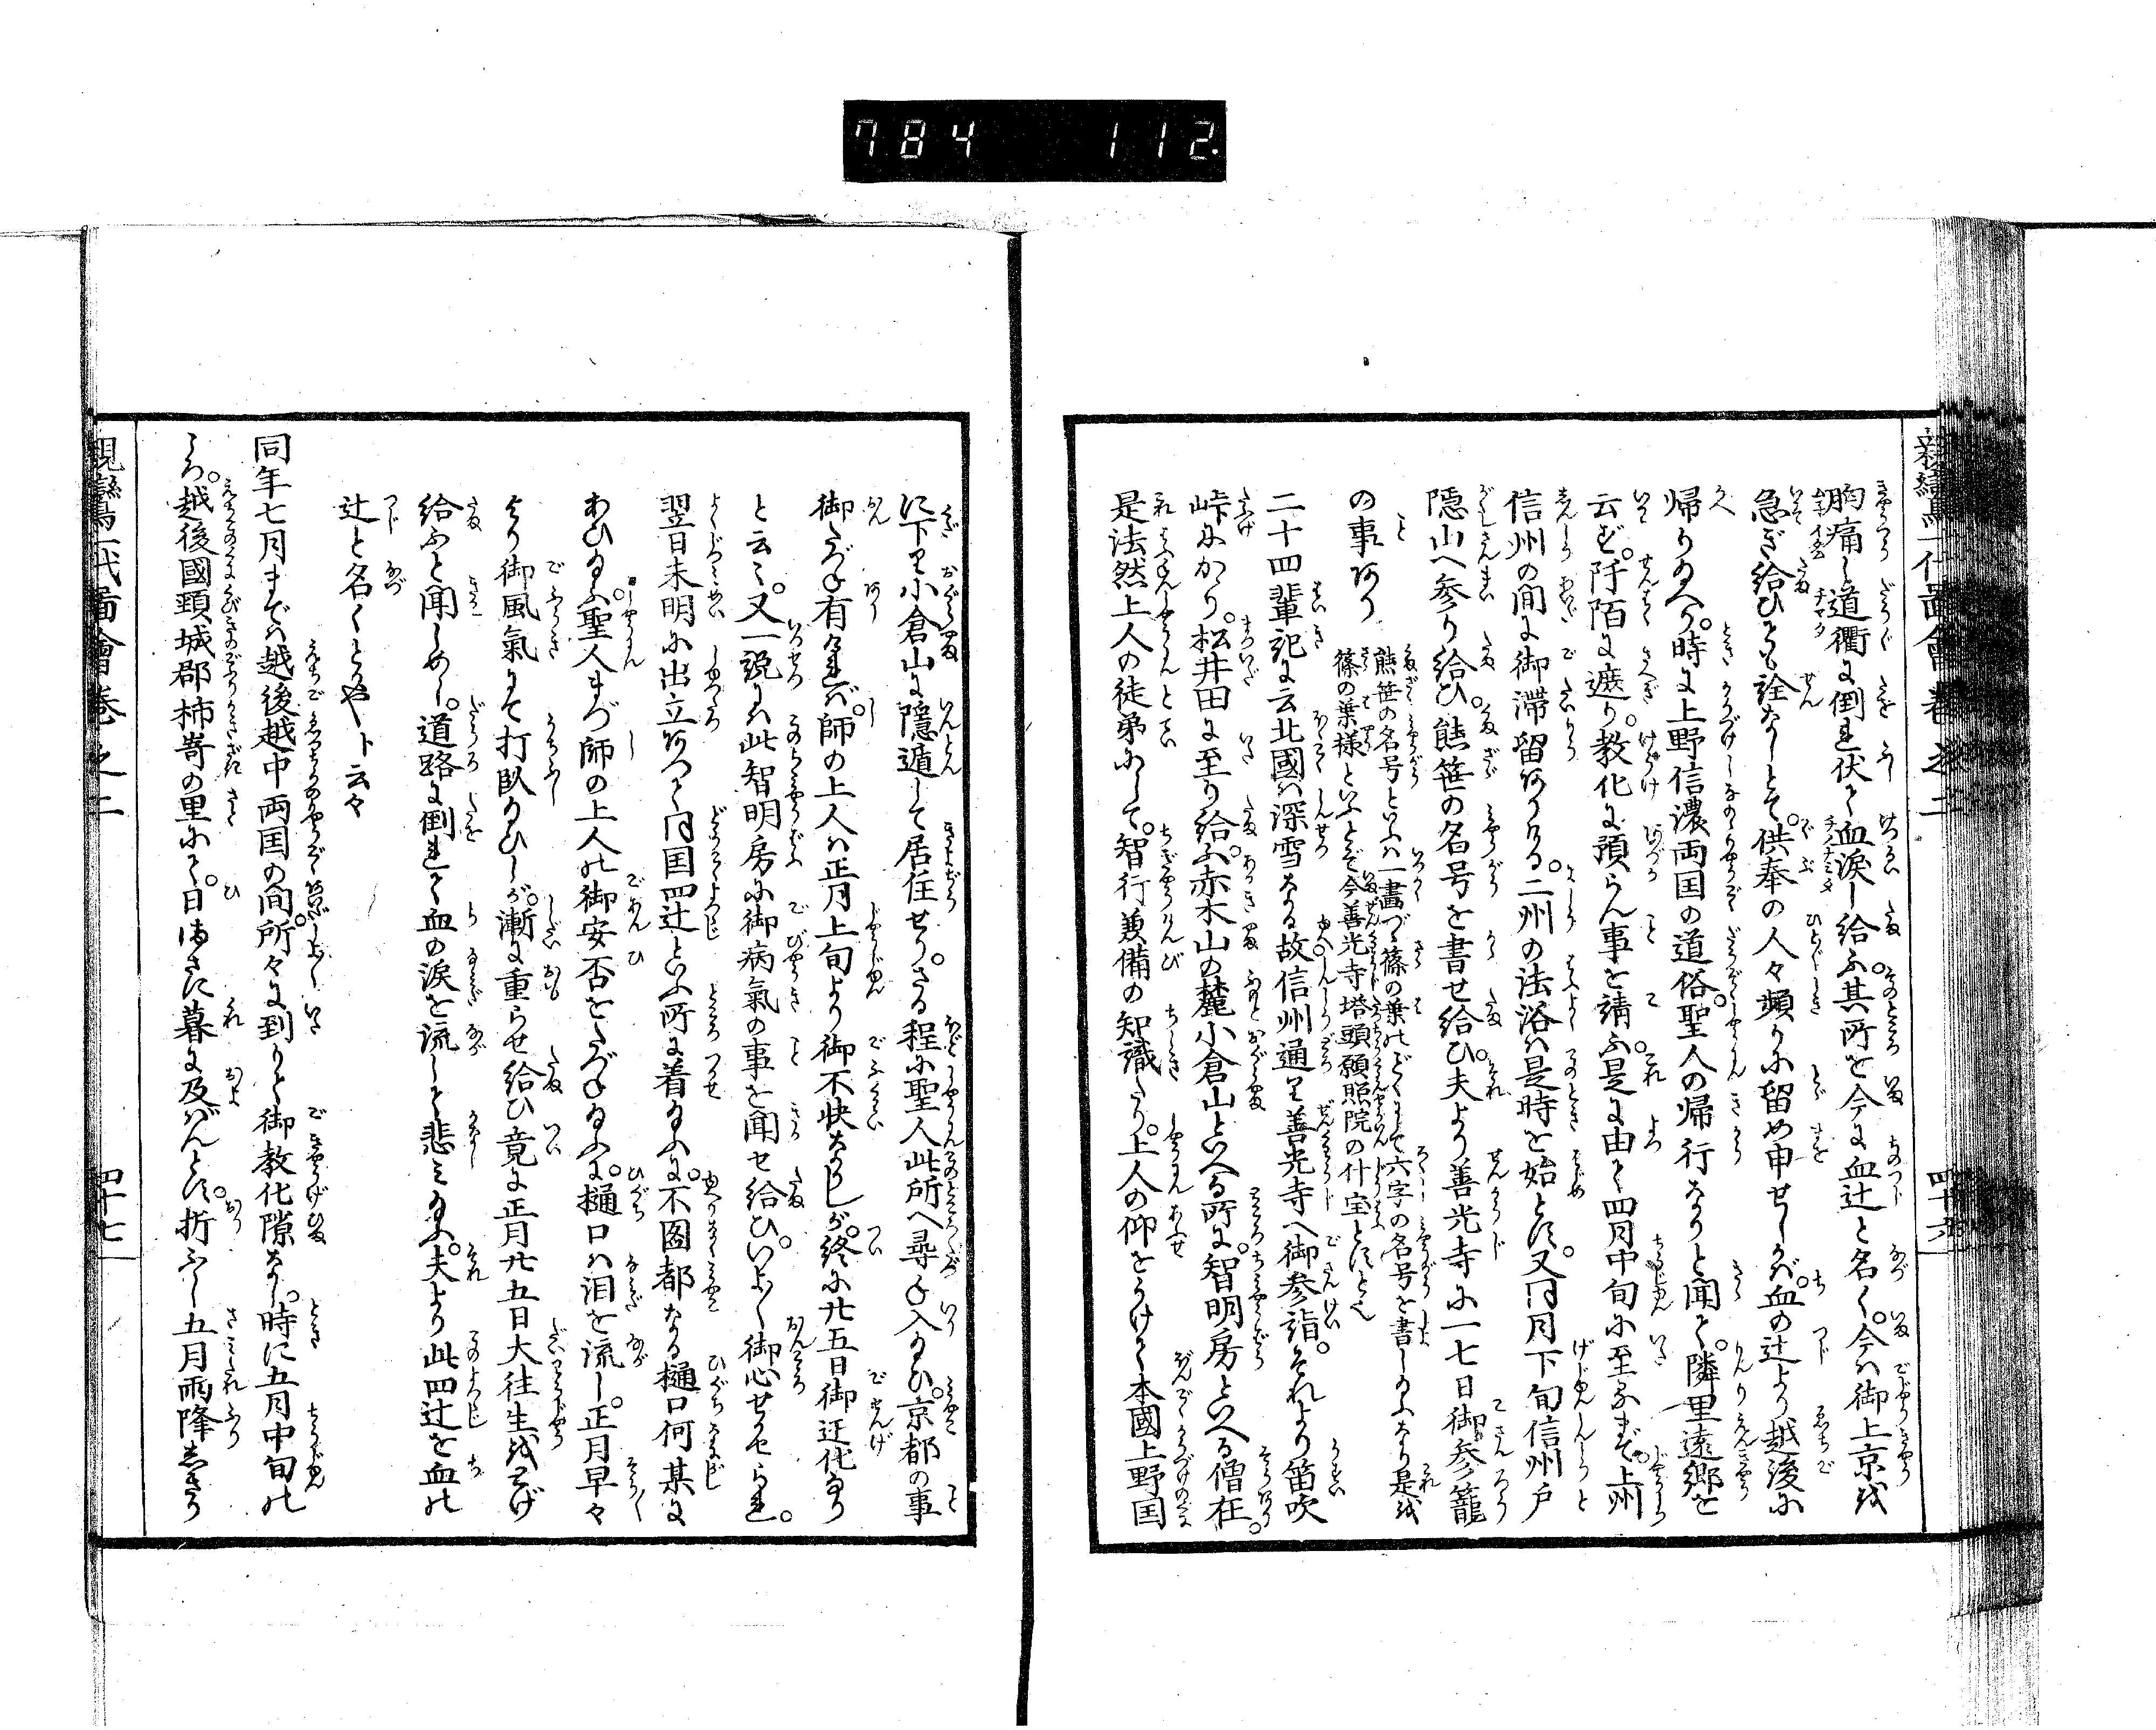 784 112
親鸞聖人一代図會巻之二 四十六
胸痛し道衢に倒れ伏て血涙し給ふ。其所を今に血辻と名く。今は御上京を
急ぎ給ひても詮なしとて。供奉の人々頻りに留め申せしかば。血の辻より越後に
帰り給へり。時に上野信濃両国の道俗。聖人の帰行なりと聞て。隣里遠郷を
云ず。阡陌に遮り。教化に預らん事を請ふ。是に由て四月中旬に至るまで。上州
信州の間に御滞留ありける。二州の法浴は是時を始とす。又同月下旬信州戸
隠山へ参り給ひ。熊笹の名号を書せ給ひ。夫より善光寺に一七日御参籠
の事あり
熊笹の名号といふは一畫づゝ篠の葉のごくにて六字の名号を書しゐふなり是を
篠の葉様といふとぞ今善光寺塔頭願照院の什宝とすと也
二十四輩記に云北國は深雪なる故信州通り善光寺へ御参詣。それより笛吹
峠にかゝり。松井田に至り給ふ。赤木山の麓小倉山といへる所に。智明房といへる僧在。
是法然上人の徒弟にして。智行兼備の知識たり。上人の仰をうけて本國上野国
に下り小倉山に隠遁して居住せり。さる程に聖人此所へ尋ね入給ひ。京都の事
御たづね有ければ。師の上人は正月上旬より御不快なりしが。終に廿五日御迁化なり
と云々。又一説には此智明房に御病氣の事を聞せ給ひ。いよ〱御心せかせられ。
翌日未明に出立ありて同国四辻といふ所に着給ふに。不図都なる樋口何某に
あひ給ふ。聖人まづ師の上人の御安否をたづね給ふに。樋口は泪を流し。正月早々
より御風氣にて打臥給ひしが。漸に重らせ給ひ竟に正月廿五日大往生をとげ
給ふと聞しめし。道路に倒れて血の涙を流して悲み給ふ。夫より此四辻を血の
辻と名くとかや ト云々
同年七月までは越後越中両国の間。所々に到りて御教化隙なし。時に五月中旬の
ころ。越後國頚城郡柿嵜の里にて。日はさに暮に及ばんとす。折ふし五月雨降しきり
親鸞一代図會巻之二 四十七